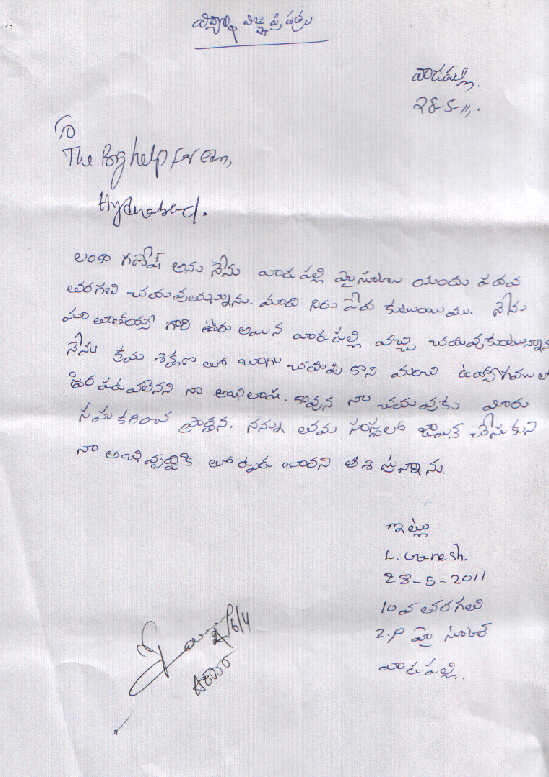 విద్యార్థి విజ్ఞప్తి పత్రము
వాడపల్లి.
28-5-11.
To
The Big help for Edn,
Hyderabad.
లంకా గణేష్ అను నేను వాడపల్లి హైస్కూలు యందు పదవ
తరగతి చదువుతున్నాను. మాది నిరు పేద కుటుంబము. నేను
మా అమ్మమ్మ గారి ఊరు అయిన వాడపల్లి వచ్చి చదువుకుంటున్నాను
నేను క్రమ శిక్షణ తో బాగా చదివి కాని మంచి ఉద్యోగములో
స్థిర పడవలెనని నా అభిలాష. కావున నా చదువుకు మీరు
సహకరించ ప్రార్థన. నన్ను తమ సంస్థలో జాయిన్ చేసుకుని
నా అభివృద్ధికి తోడ్పడ గలరని ఆశిస్తున్నాను.
ఇట్లు
L. Ganesh.
28-5-2011
10వ తరగతి
Z.P హై స్కూల్
వాడపల్లి.